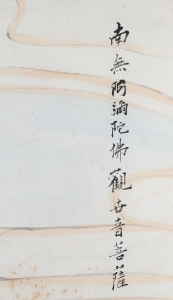 南無阿彌陀佛觀世音菩薩